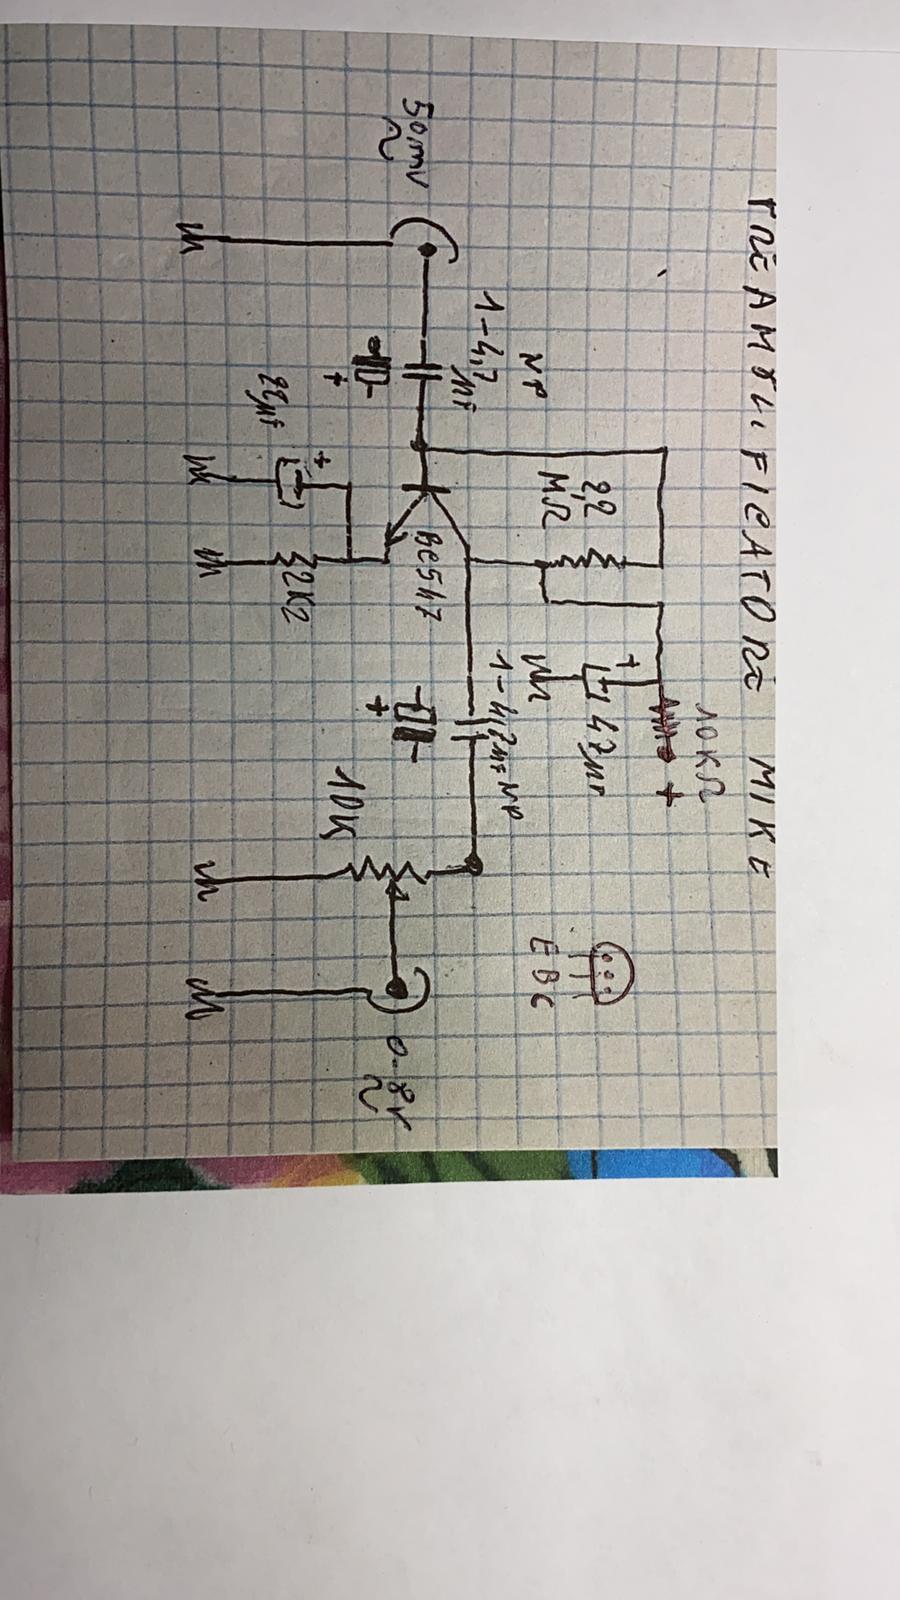 PREAMPLIFICATORE MIKE
10KΩ
+
NP
1-4,7
µF
2,2
MΩ
+
47µF
1-4,7µF NP
E B C
50mV
~
BC547
+
+
22µF
+
2K2
10K
0-8V
~